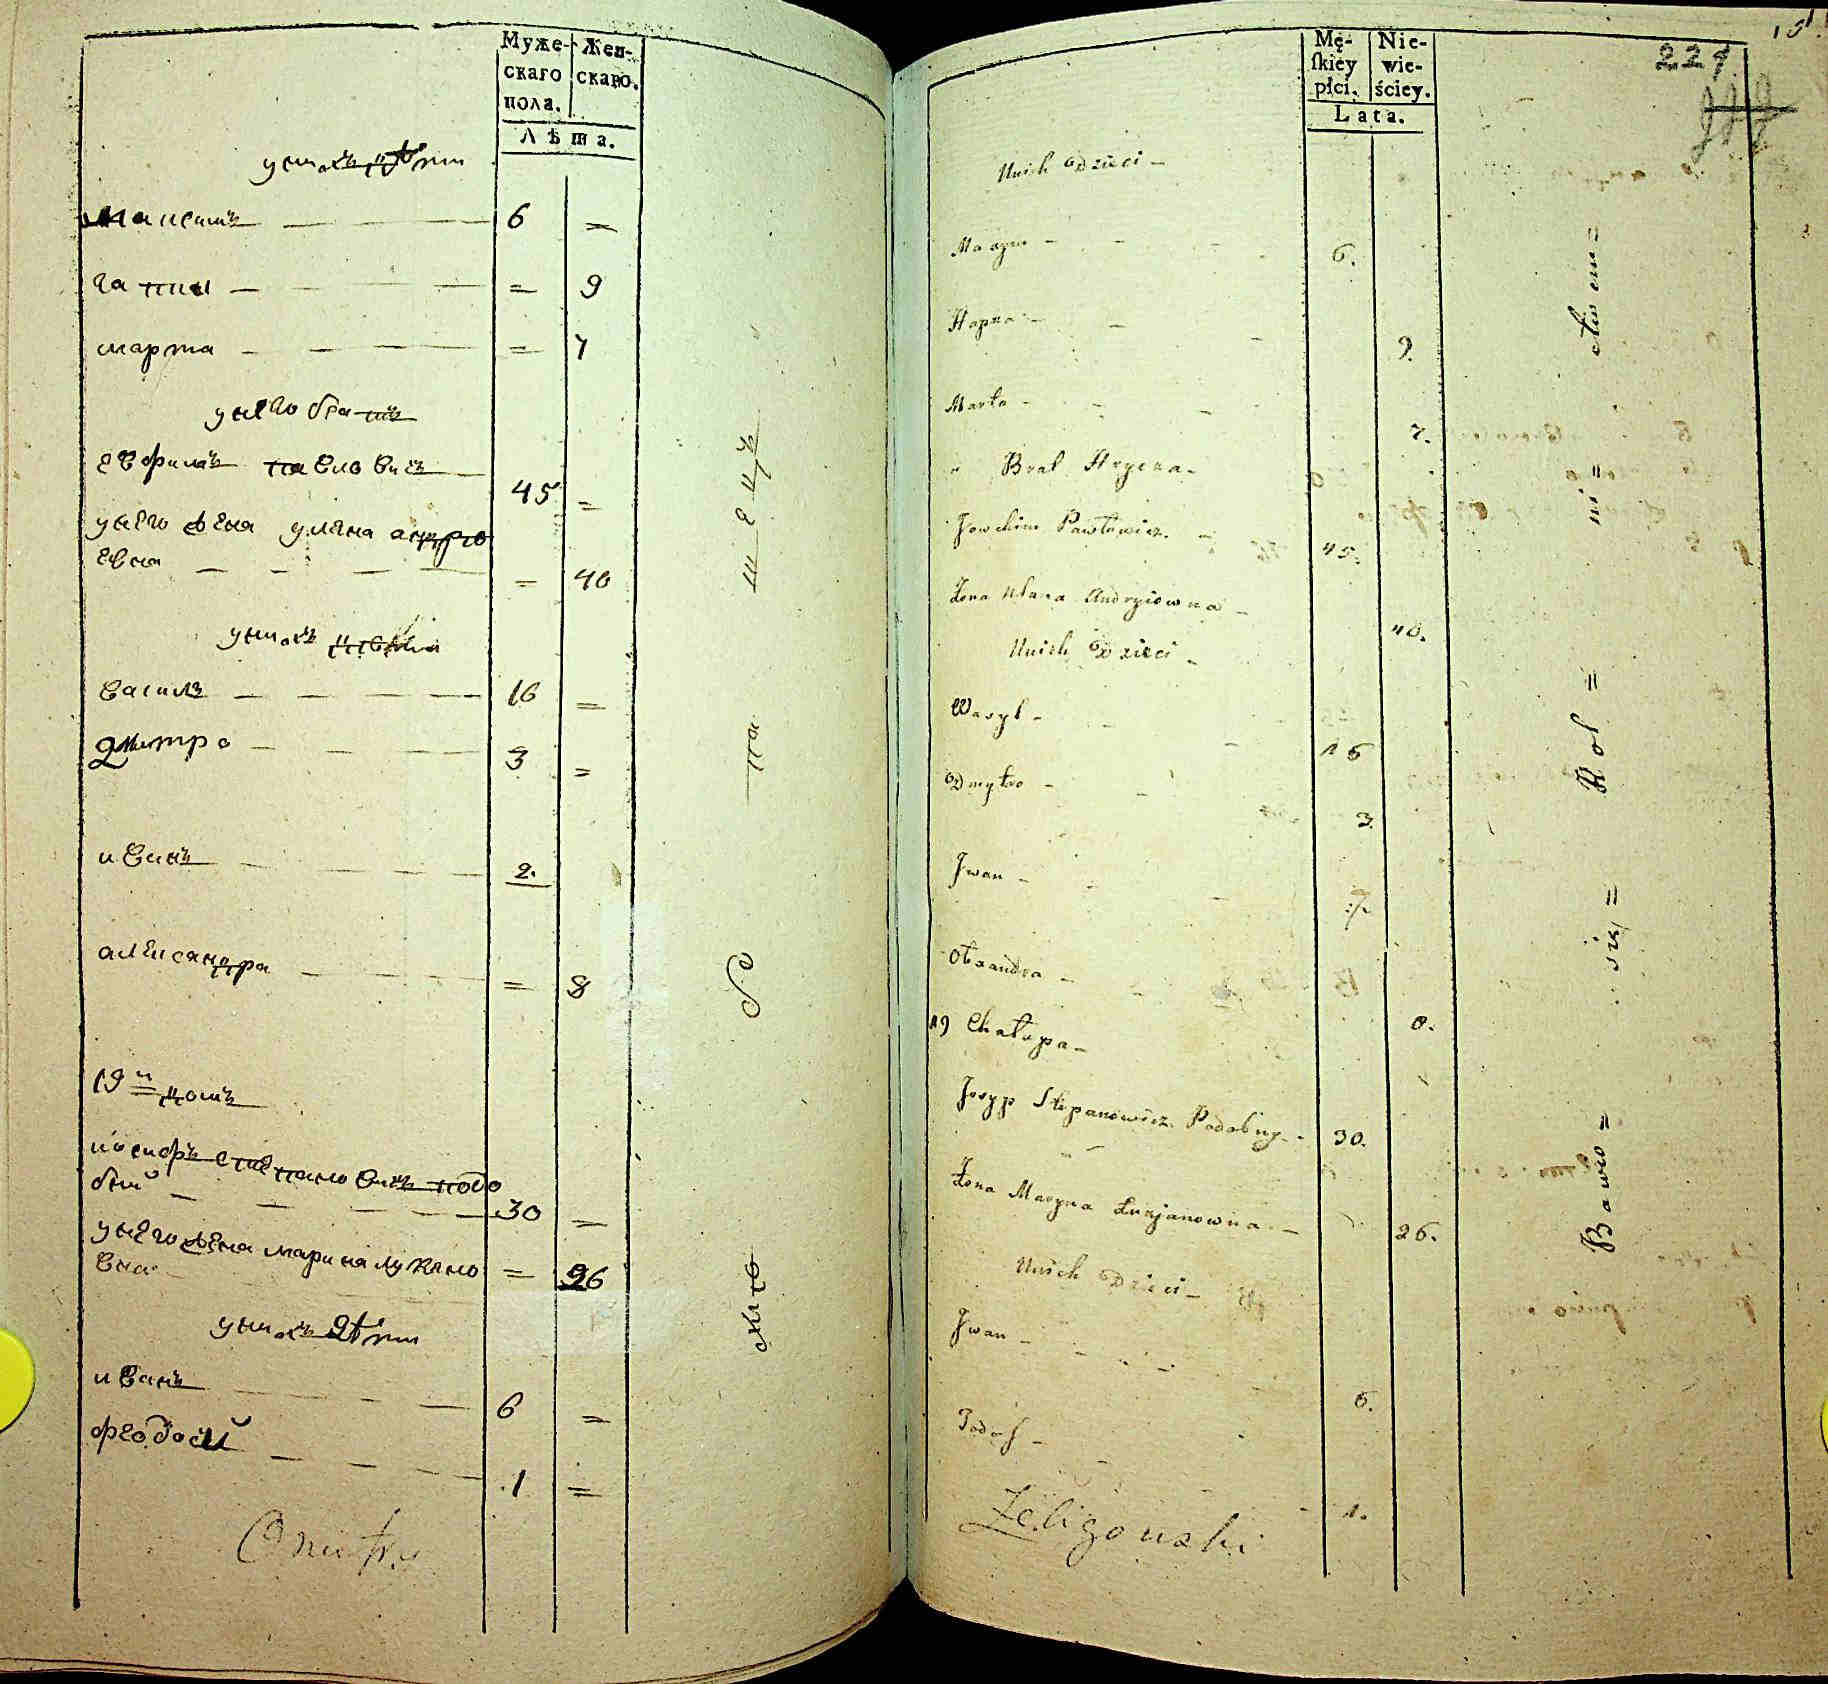 Муже-
скаго
пола.
Жен-
скаго.
Лѣта.
у них дѣти
Максим 6 =
Гапка — = 9
марта — = 7
у него брат
Евфим Павлович 45 =
у него жена уляна андрѣ
евна = 40
у них
василъ 16 =
Дмитро 3 =
иван 2.
александра = 8
19й дом
иосиф степанович подо
бний 30 =
у него жена марина лукяно
вна = 26
у них дѣти
иван 6 =
феодосий 1 =
Mę-
ſkiey
płci.
Nie-
wie-
ściey.
Lata.
221
Unich Dzieci -
Maxym - 6.
Hapka - 9.
Marta - 7.
Brat Hrycka -
Jowchim Pawłowicz. - 45.
Żona Ulana Andryiowna - 40.
Unich Dzieci -
Wasyl - 16
Dmytro - 3.
Jwan -
Olexandra - 8.
19) Chałupa -
Josyp Stepanowicz Podobny - 30.
Żona Maryna Łukjanowna - 26.
Unich Dzieci -
Jwan - 6.
Todoſ - 1.
Żeligowski